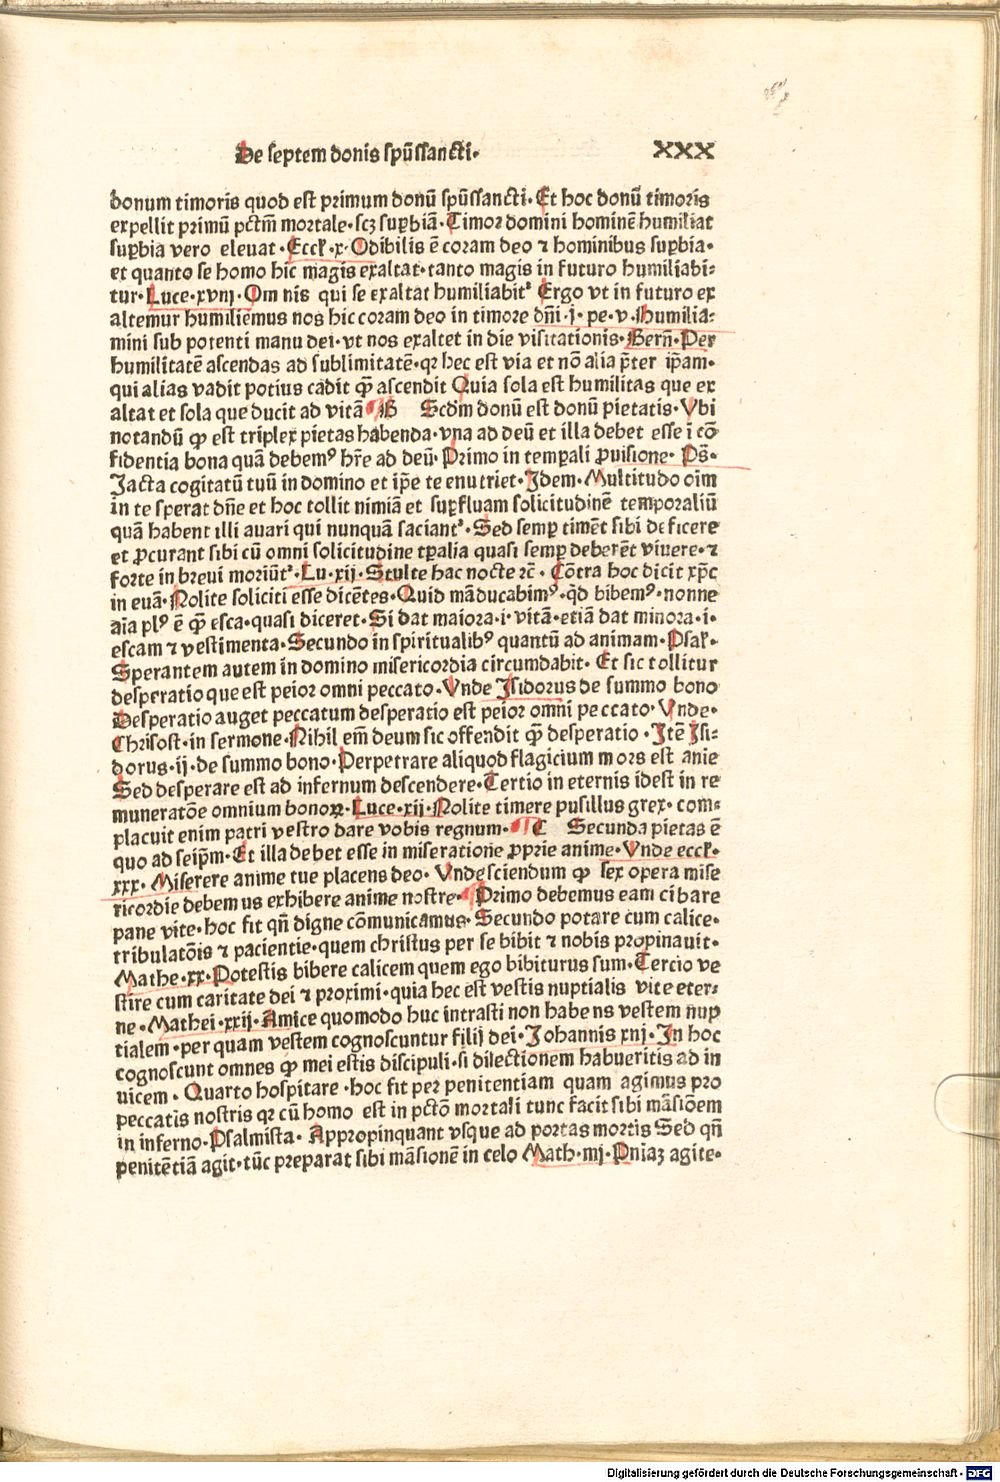 De septem donis spūssancti· XXX
donum timoris quod est primum donū spūssancti· Et hoc donū timoris
expellit primū pctm̄ mortale· scꝫ suꝑbiā· Timor domini hominē humiliat
suꝑbia vero eleuat· Eccł·x· Odibilis ē coram deo ⁊ hominibus suꝑbia·
et quanto se homo hic magis exaltat· tanto magis in futuro humiliabi-
tur· Luce·xvııȷ· Om nis qui se exaltat humiliabitᷣ Ergo vt in futuro ex
altemur humiliemus nos hic coram deo in timore dn̄i·j·pe·v·Humilia-
mini sub potenti manu dei· vt nos exaltet in die visitationis· Bern̄· Per
humilitatē ascendas ad sublimitatē· qꝛ hec est via et nō alia p̄ter ip̄am·
qui alias vadit potius cadit qͣ̄ ascendit Quia sola est humilitas que ex
altat et sola que ducit ad vitā ¶ B Scdm donū est donū pietatis· Vbi
notandū ꝙ est triplex pietas habenda· vna ad deū et illa debet esse ī cō
fidentia bona quā debemꝰ hr̄e ad deū· Primo in temꝑali ꝓuisione· Ps̄·
Jacta cogitatū tuū in domino et ip̄e te enutriet· Jdem· Multitudo oīm
in te sperat dn̄e et hoc tollit nimiā et suꝑfluam solicitudinē temporaliū
quā habent illi auari qui nunquā saciantᷣ· Sed semꝑ timēt sibi deficere
et ꝓcurant sibi cū omni solicitudine tꝑalia quasi semꝑ deberēt viuere· ⁊
forte in breui moriūtᷣ· Lu·xij· Stulte hac nocte ⁊c̄· Cōtra hoc dicit xp̄c
in euā· Nolite soliciti esse dicētes· Quid māducabimꝰ· qd̄ bibemꝰ· nonne
aīa plꝰ ē qͣ̄ esca· quasi diceret· Si dat maiora·i·vitā· etiā dat minora·i·
escam ⁊ vestimenta· Secundo in spiritualibꝰ quantū ad animam· Psał·
Sperantem autem in domino misericordia circumdabit· Et sic tollitur
desperatio que est peior omni peccato· Vnde Jsidorus de summo bono
Desperatio auget peccatum desperatio est peior omni peccato· Vnde·
Chrisost· in sermone· Nihil em̄ deum sic offendit qͣ̄ desperatio· Jtē Jsi-
dorus·ij·de summo bono· Perpetrare aliquod flagicium mors est anie
Sed desperare est ad infernum descendere· Tertio in eternis idest in re
muneratōe omnium bonoꝝ· Luce·xij· Nolite timere pusillus grex· com-
placuit enim patri vestro dare vobis regnum· ¶ C Secunda pietas ē
quo ad seip̄m· Et illa debet esse in miseratione ꝓprie anime· Vnde eccł·
xxx· Miserere anime tue placens deo· Vnde sciendum ꝙ sex opera mise
ricordie debemus exhibere anime nostre· ¶ Primo debemus eam cibare
pane vite· hoc fit qn̄ digne cōmunicamus· Secundo potare cum calice·
tribulatōis ⁊ pacientie· quem christus per se bibit ⁊ nobis propinauit·
Mathe·xx· Potestis bibere calicem quem ego bibiturus sum· Tercio ve
stire cum caritate dei ⁊ proximi· quia hec est vestis nuptialis vite eter-
ne· Mathei·xxij· Amice quomodo huc intrasti non habens vestem nup
tialem· per quam vestem cognoscuntur filij dei· Johannis xııȷ· Jn hoc
cognoscunt omnes ꝙ mei estis discipuli· si dilectionem habueritis ad in
uicem· Quarto hospitare· hoc fit per penitentiam quam agimus pro
peccatis nostris qꝛ cū homo est in pctō mortali tunc facit sibi māsiōem
in inferno· Psalmista· Appropinquant vsque ad portas mortis Sed qn̄
penitētiā agit· tūc preparat sibi māsionē in celo Math·ııȷ· Pniaꝫ agite·
Digitalisierung gefördert durch die Deutsche Forschungsgemeinschaft - DFG